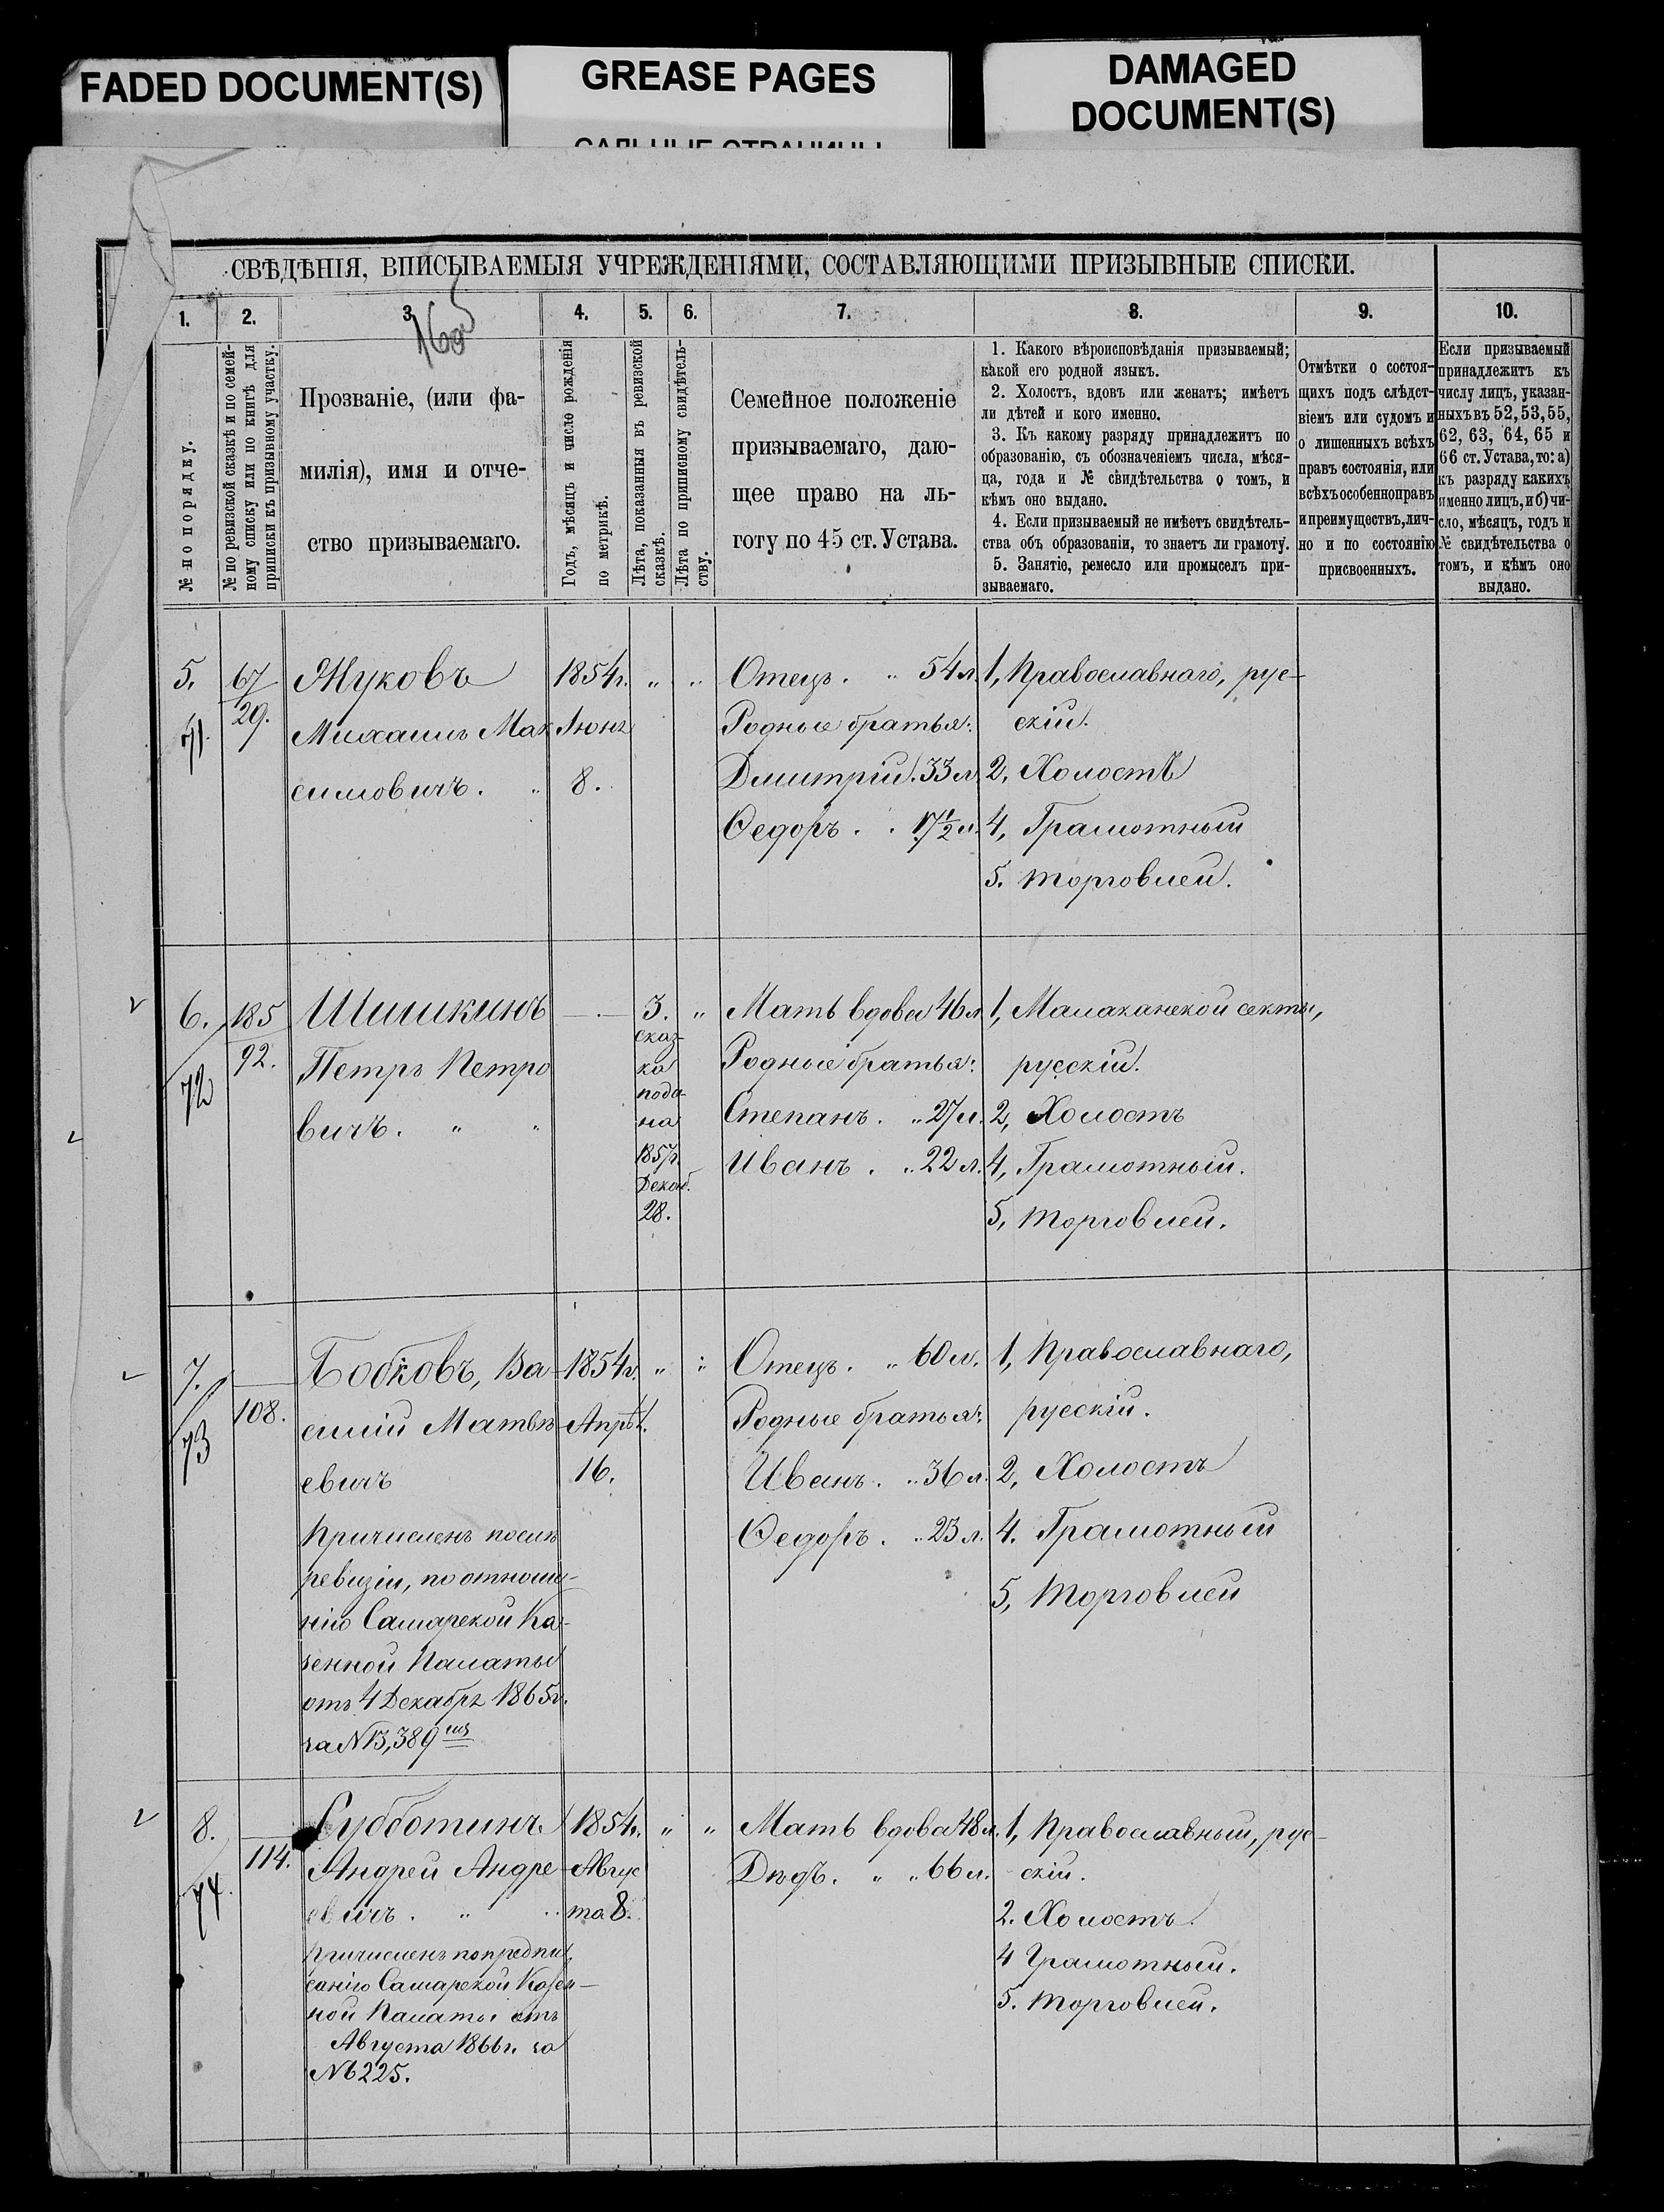 FADED DOCUMENT(S)
GREASE PAGES
САЛЬНЫЕ СТРАНИЦЫ
DAMAGED
DOCUMENT(S)
СВѢДѢНІЯ, ВПИСЫВАЕМЫЯ УЧРЕЖДЕНІЯМИ, СОСТАВЛЯЮЩИМИ ПРИЗЫВНЫЕ СПИСКИ.
1.
2.
3.
4.
5.
6.
7.
8.
9.
10.
№ по порядку.
№ по ревизской сказкѣ и по семей-
ному списку или по книгѣ для
приписки къ призывному участку.
Прозваніе, (или фа-
милія), имя и отче-
ство призываемаго.
Годъ, мѣсяцъ и число рожденія
по метрикѣ.
Лѣта, показанныя въ ревизской
сказкѣ.
Лѣта по приписному свидѣтель-
ству.
Семейное положеніе
призываемаго, даю-
щее право на ль-
готу по 45 ст. Устава.
1. Какого вѣроисповѣданія призываемый;
какой его родной языкъ.
2. Холостъ, вдовъ или женатъ; имѣетъ
ли дѣтей и кого именно.
3. Къ какому разряду принадлежитъ по
образованію, съ обозначеніемъ числа, мѣся-
ца, года и № свидѣтельства о томъ, и
кѣмъ оно выдано.
4. Если призываемый не имѣетъ свидѣтель-
ства объ образованіи, то знаетъ ли грамоту.
5. Занятіе, ремесло или промыселъ при-
зываемаго.
Отмѣтки о состоя-
щихъ подъ слѣдст-
віемъ или судомъ и
о лишенныхъ всѣхъ
правъ состоянія, или
всѣхъ особенно правъ
и преимуществъ, лич-
но и по состоянію
присвоенныхъ.
Если призываемый
принадлежитъ къ
числу лицъ, указан-
ныхъ въ 52, 53, 55,
62, 63, 64, 65 и
66 ст. Устава, то: а)
къ разряду какихъ
именно лицъ, и б) чи-
сло, мѣсяцъ, годъ и
№ свидѣтельства о
томъ, и кѣмъ оно
выдано.
5.
71.
67
29.
Жуковъ
Михаилъ Мак
симовичъ. "
1854 г.
Іюня
8.
" "
Отецъ. " 54 л.
Родные братья:
Дмитрій. 33 л.
Ѳедоръ. . 17½ л.
1, Православнаго, рус-
скій.
2, Холостъ
4, Грамотный
5. торговлей.
6.
72
185
92.
Шишкинъ
Петръ Петро
вичъ. " "
3.
сказ-
ка
пода-
на
1857 г.
Декаб.
28.
"
Мать вдова 46 л.
Родные братья:
Степанъ. " 27 л.
Иванъ. " 22 л.
1, Малаканской секты,
русскій.
2, Холостъ
4, Грамотный.
5, торговлей.
7.
73
108.
Бобковъ, Ва-
силій Матвѣ-
евичъ
Причисленъ послѣ
ревизіи, по отноше-
нію Самарской Ка-
зенной Палаты
отъ 4 Декабря 1865 г.
за № 13,389
1854 г.
Апрѣл.
16.
" "
Отецъ. " 60 л.
Родные братья:
Иванъ. " 36 л.
Ѳедоръ. " 23 л.
1, Православнаго,
русскій.
2, Холостъ
4. Грамотный
5, торговлей
8.
74.
114.
Субботинъ
Андрей Андре-
евичъ. " "
причисленъ по предпи-
санію Самарской Казен-
ной Палаты отъ
Августа 1866 г. за
№ 6225.
1854 г.
Авгус
та 8.
" "
Мать вдова 48 л.
Дѣдъ. " " 66 л.
1, Православный, рус-
скій.
2. Холостъ.
4 Грамотный.
5. торговлей.